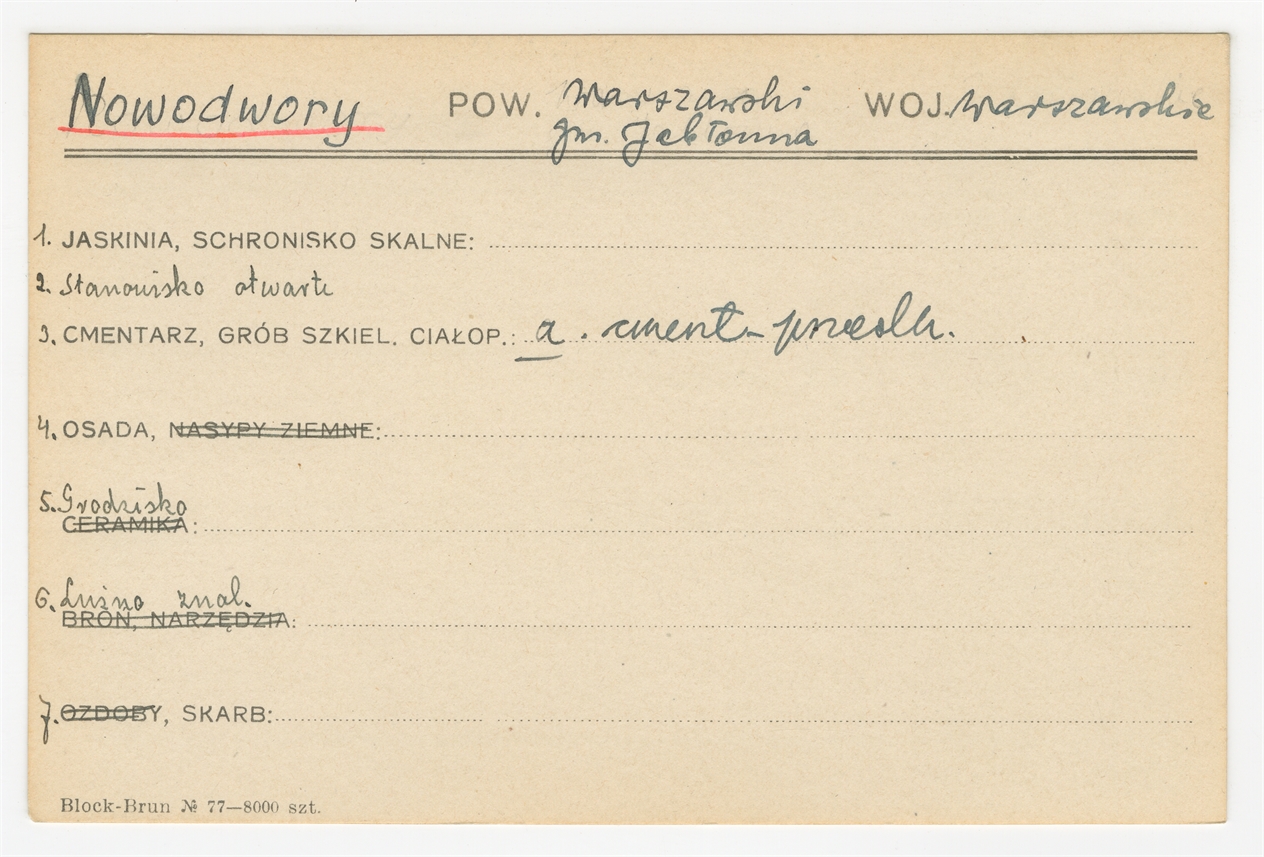 Nowodwory POW. Warszawski WOJ. Warszawskie
gm. Jabłonna
1. JASKINIA, SCHRONISKO SKALNE:
2. Stanowisko otwarte
3. CMENTARZ, GRÓB SZKIEL. CIAŁOP.: a. cment-
4. OSADA, NASYPY ZIEMNE:
5. Grodzisko
CERAMIKA:
6. Luźno znal.
BROŃ, NARZĘDZIA:
7. OZDOBY, SKARB:
Block-Brun № 77—8000 szt.